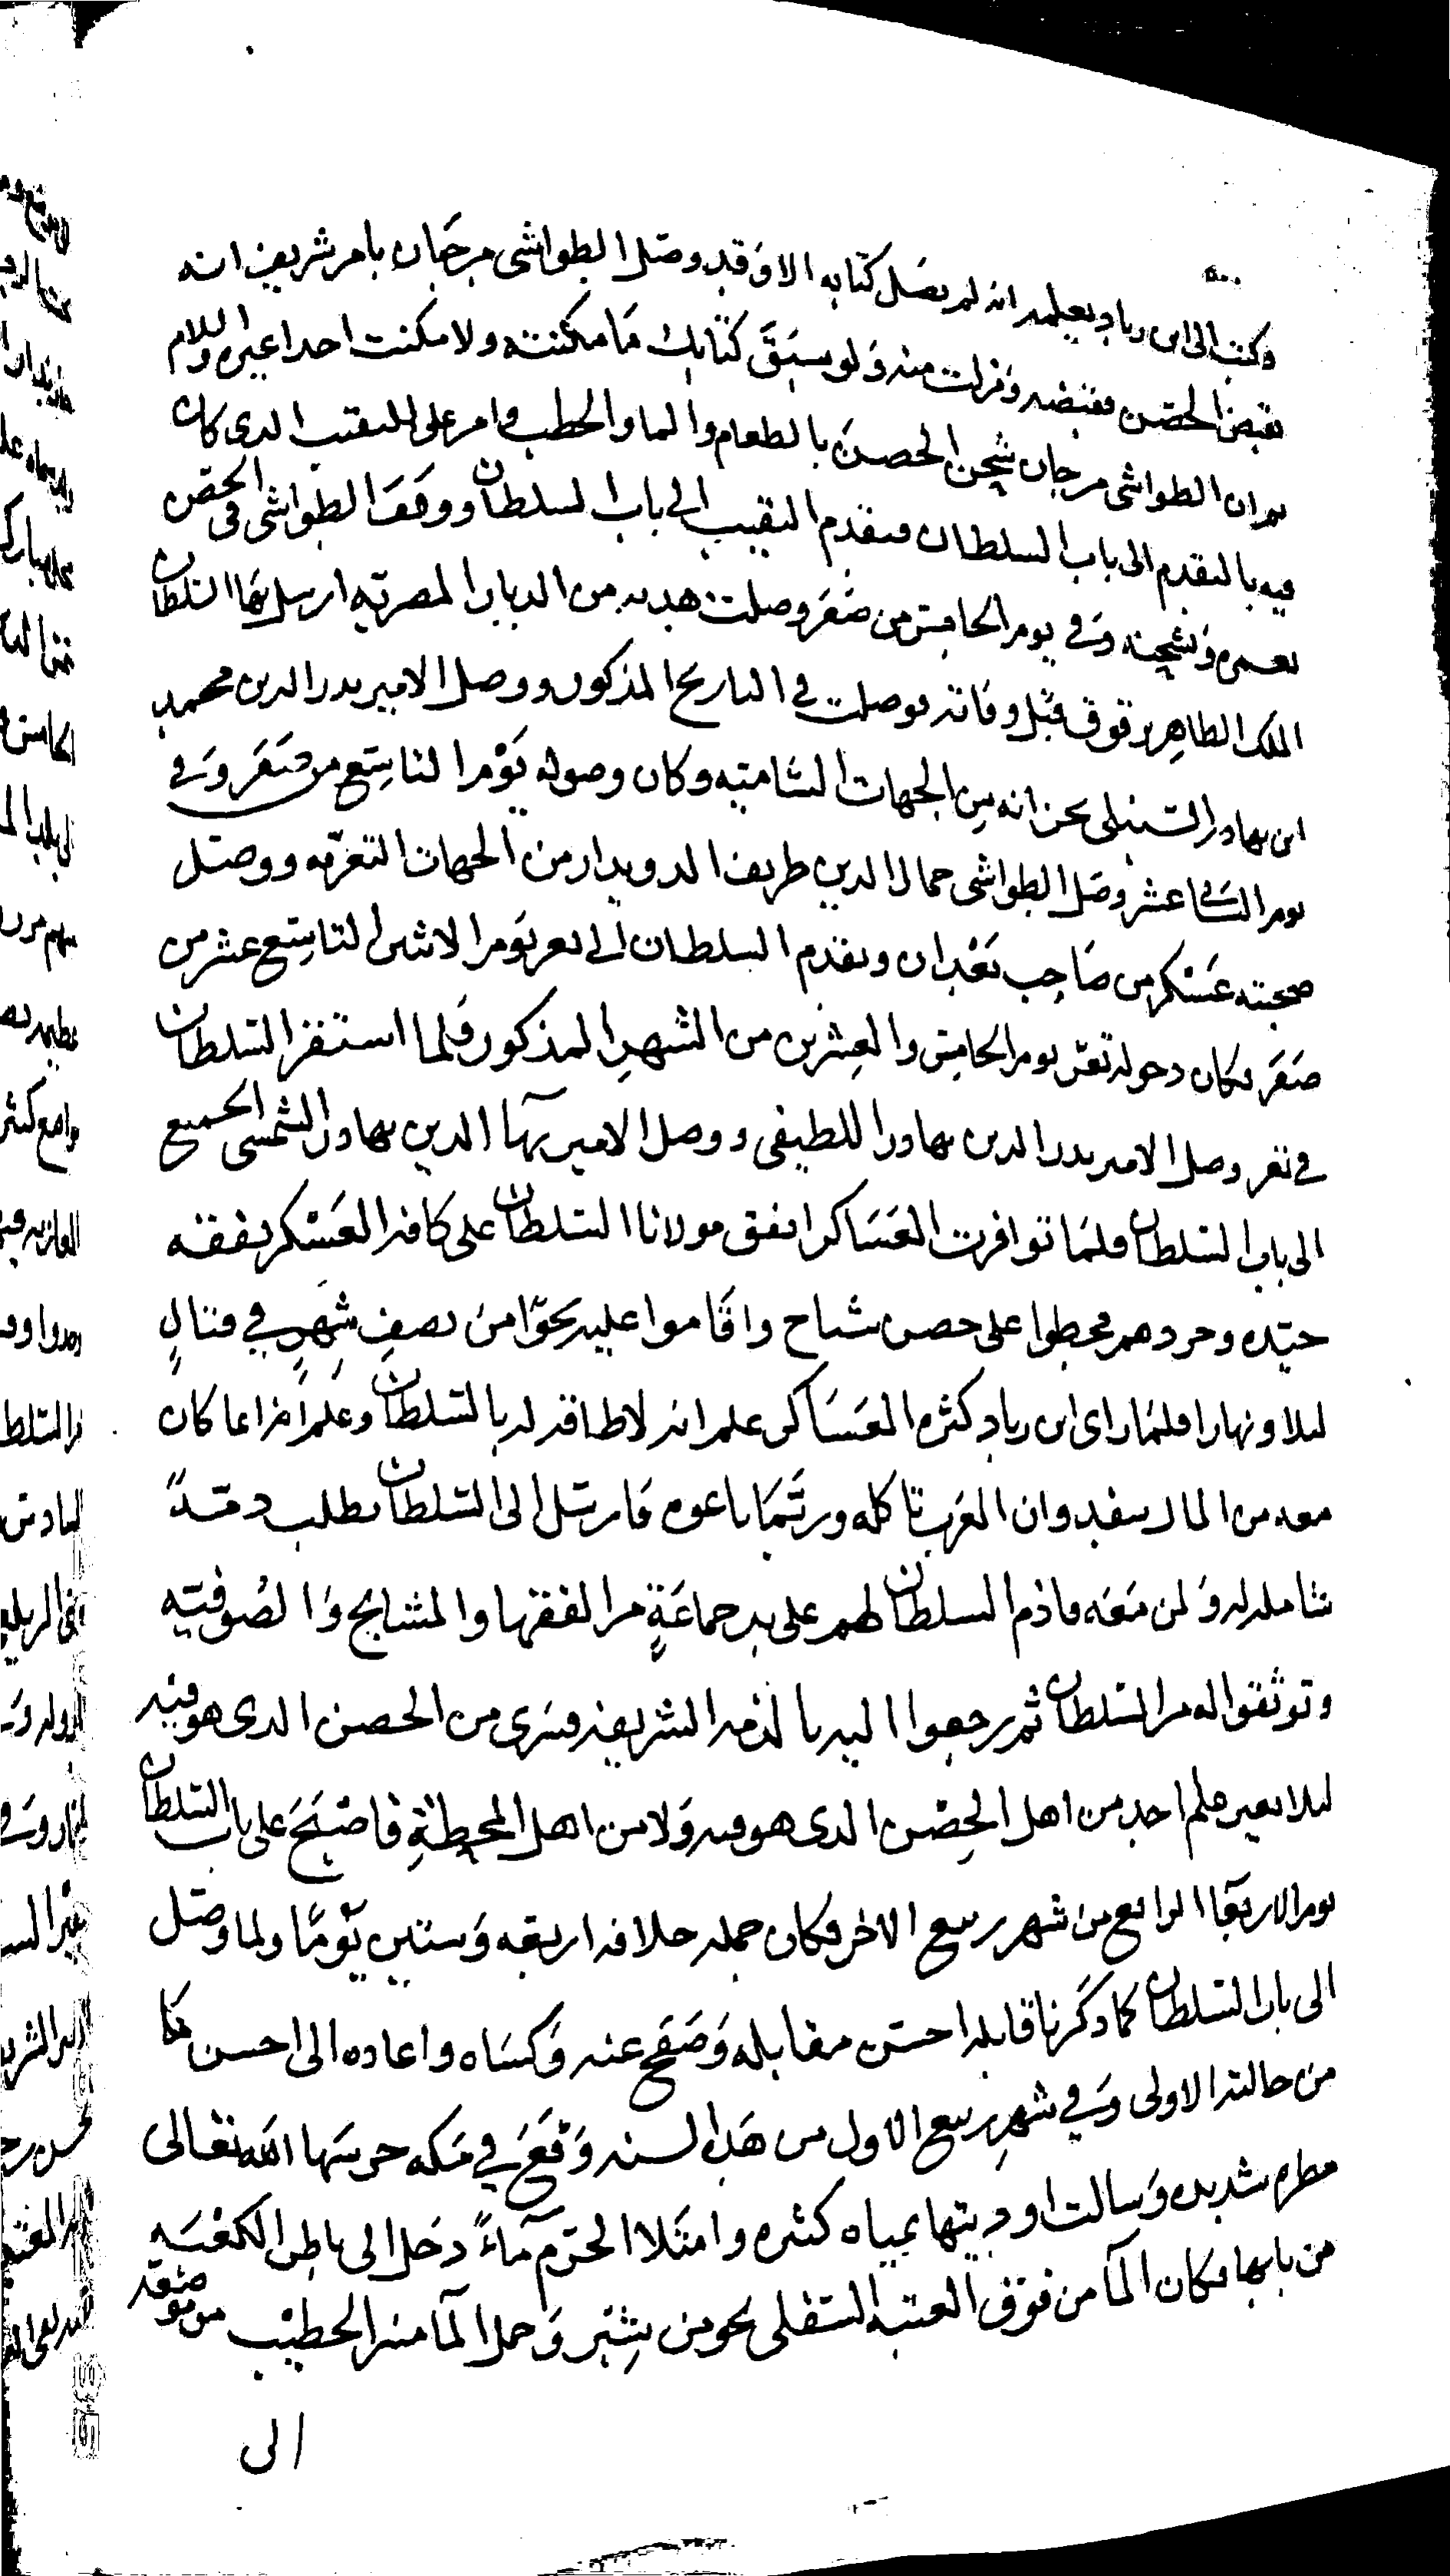 وكتب الى ابن زياد يعلمه انه لم يصل كتابه الا وقد وصل الطواشي مرجان بامر شريف انه
يقبض الحصن فقبضه ونزلت منه ولو سبق كتابك ما مكنته ولا مكنت احدا غيره والسلام
ثم ان الطواشي مرجان شحن الحصن بالطعام والما والحطب وامر على النقيب الذي كان
فيه بالتقدم الى باب السلطان فتقدم النقيب الى باب السلطان ووقف الطواشي في الحصن
يعمره ويشحنه وفي يوم الخامس من صفر وصلت هدية من الديار المصرية ارسل بها السلطان
الملك الظاهر برقوق قبل وفاته فوصلت في التاريخ المذكور ووصل الامير بدر الدين محمد
ابن بهادر السنبلي بخزانة من الجهات الشامية وكان وصوله يوم التاسع من صفر وفي
يوم الثاني عشر وصل الطواشي جمال الدين طريف الدويدار من الجهات التعزية ووصل
صحبته عسكر من صاحب بعدان وتقدم السلطان الى تعز يوم الاثنين التاسع عشر من
صفر فكان دخوله تعز يوم الخامس والعشرين من الشهر المذكور فلما استقر السلطان
في تعز وصل الامير بدر الدين بهادر اللطيفي ووصل الامير بهاء الدين بهادر الشمسي الجميع
الى باب السلطان فلما توافرت العساكر انفق مولانا السلطان على كافة العسكر نفقه
جيده وجردهم فحطوا على حصن شباح واقاموا عليه نحوا من نصف شهر في قتال
ليلا ونهارا فلما راى ابن زياد كثرة العساكر علم انه لا طاقة له بالسلطان وعلم ان ما كان
معه من المال سفد وان العرب تاكله وربما باعوه فارسل الى السلطان يطلب ذمة
شاملة له ولمن معه فاذم السلطان لهم على يد جماعة من الفقها والمشايخ والصوفيه
وتوثقوا له من السلطان ثم رجعوا اليه بالذمة الشريفة فسرى من الحصن الذي هو فيه
ليلا بغير علم احد من اهل الحصن الذي هو فيه ولا من اهل المحطة فاصبح على باب السلطان
يوم الاربعا الرابع من شهر ربيع الاخر فكان جملة خلافه اربعه وستين يوما ولما وصل
الى باب السلطان كما ذكرنا قابله احسن مقابله وصفح عنه وكساه واعاده الى احسن مما
من حالته الاولى وفي شهر ربيع الاول من هذه السنه وقع في مكه حرسها الله تعالى
مطره شديده وسالت اوديتها بمياه كثيره وامتلا الحرم ماء دخل الى باطن الكعبه
من بابها فكان الما من فوق العتبه السفلى نحو من شبر وحمل الما منبر الخطيب من موضعه
الى